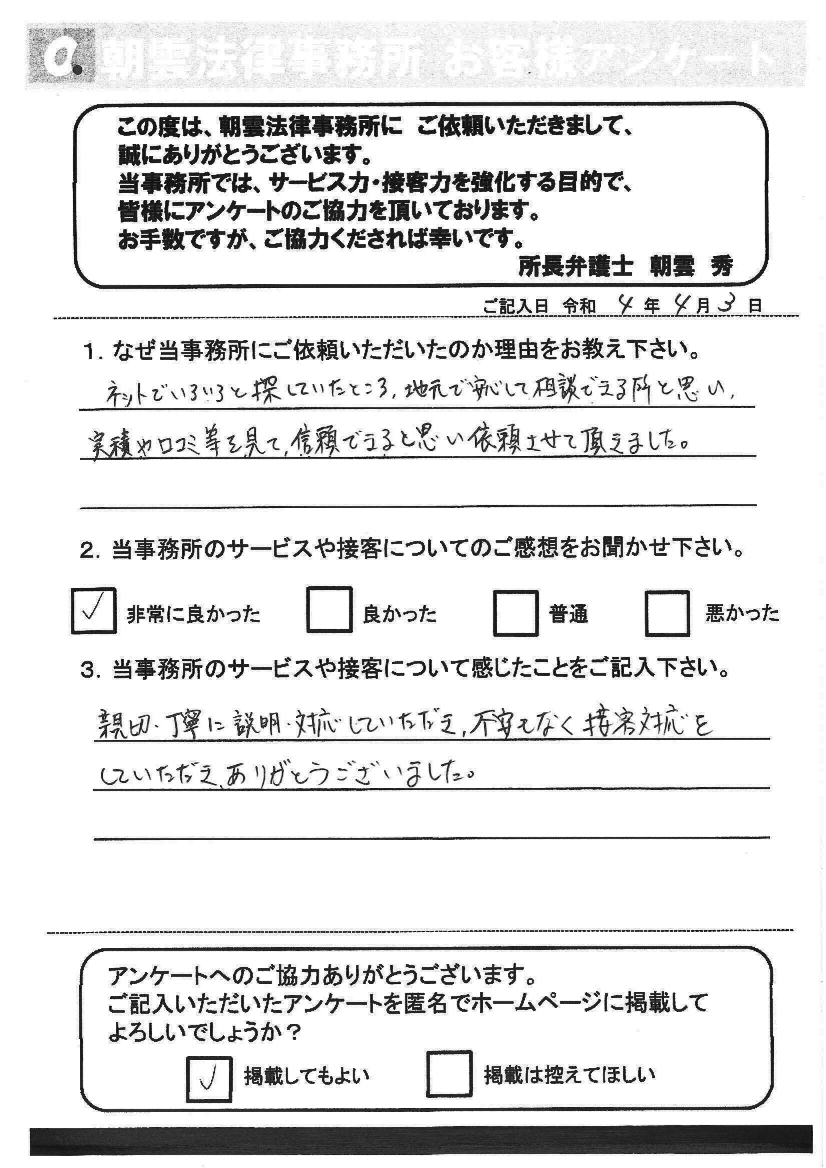 a. 朝雲法律事務所 お客様アンケート
この度は、朝雲法律事務所に ご依頼いただきまして、
誠にありがとうございます。
当事務所では、サービス力・接客力を強化する目的で、
皆様にアンケートのご協力を頂いております。
お手数ですが、ご協力くだされば幸いです。
所長弁護士 朝雲 秀
ご記入日 令和 4 年 4 月 3 日
1. なぜ当事務所にご依頼いただいたのか理由をお教え下さい。
ネットでいろいろと探していたところ、地元で安心して相談できる所と思い、
実績や口コミ等を見て、信頼できると思い依頼させて頂きました。
2. 当事務所のサービスや接客についてのご感想をお聞かせ下さい。
✓ 非常に良かった 良かった 普通 悪かった
3. 当事務所のサービスや接客について感じたことをご記入下さい。
親切・丁寧に説明・対応していただき、不安もなく接客対応を
していただき、ありがとうございました。
アンケートへのご協力ありがとうございます。
ご記入いただいたアンケートを匿名でホームページに掲載して
よろしいでしょうか?
✓ 掲載してもよい 掲載は控えてほしい